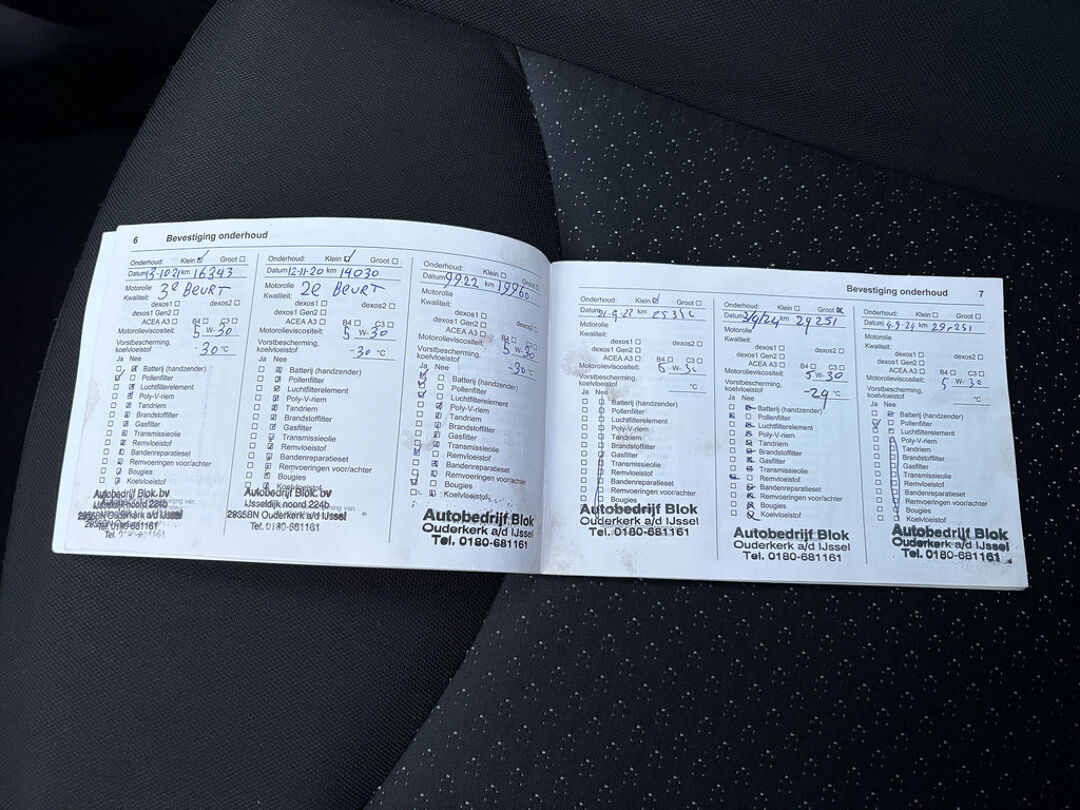 6 Bevestiging onderhoud
Onderhoud: Klein Groot
Datum 13-10-21 km 16343
Motorolie 3e BEURT
Kwaliteit:
dexos1 dexos2
dexos1 Gen2
ACEA A3 B4 C3
Motorolieviscositeit: 5 W-30
Vorstbescherming,
koelvloeistof -30 °C
Ja Nee
Batterij (handzender)
Pollenfilter
Luchtfilterelement
Poly-V-riem
Tandriem
Brandstoffilter
Gasfilter
Transmissieolie
Remvloeistof
Bandenreparatieset
Remvoeringen voor/achter
Bougies
Koelvloeistof
Autobedrijf Blok bv
IJsseldijk noord 224b
2935BN Ouderkerk a/d IJssel
Tel. 0180-681161
Onderhoud: Klein Groot
Datum 12-11-20 km 14030
Motorolie 2e BEURT
Kwaliteit:
dexos1 dexos2
dexos1 Gen2
ACEA A3 B4 C3
Motorolieviscositeit: 5 W-30
Vorstbescherming,
koelvloeistof -30 °C
Ja Nee
Batterij (handzender)
Pollenfilter
Luchtfilterelement
Poly-V-riem
Tandriem
Brandstoffilter
Gasfilter
Transmissieolie
Remvloeistof
Bandenreparatieset
Remvoeringen voor/achter
Bougies
Koelvloeistof
Autobedrijf Blok. bv
IJsseldijk noord 224b
2935BN Ouderkerk a/d IJssel
Tel. 0180-681161
Onderhoud: Klein Groot
Datum 9922 km 19960
Motorolie
Kwaliteit:
dexos1 dexos2
dexos1 Gen2
ACEA A3 B4 C3
Motorolieviscositeit: 5 W-30
Vorstbescherming,
koelvloeistof -30 °C
Ja Nee
Batterij (handzender)
Pollenfilter
Luchtfilterelement
Poly-V-riem
Tandriem
Brandstoffilter
Gasfilter
Transmissieolie
Remvloeistof
Bandenreparatieset
Remvoeringen voor/achter
Bougies
Koelvloeistof
Autobedrijf Blok
Ouderkerk a/d IJssel
Tel. 0180-681161
Bevestiging onderhoud 7
Onderhoud: Klein Groot
Datum km
Motorolie
Kwaliteit:
dexos1 dexos2
dexos1 Gen2
ACEA A3 B4 C3
Motorolieviscositeit: 5 W-30
Vorstbescherming,
koelvloeistof °C
Ja Nee
Batterij (handzender)
Pollenfilter
Luchtfilterelement
Poly-V-riem
Tandriem
Brandstoffilter
Gasfilter
Transmissieolie
Remvloeistof
Bandenreparatieset
Remvoeringen voor/achter
Bougies
Koelvloeistof
Autobedrijf Blok
Ouderkerk a/d IJssel
Tel. 0180-681161
Onderhoud: Klein Groot
Datum km 29251
Motorolie
Kwaliteit:
dexos1 dexos2
dexos1 Gen2
ACEA A3 B4 C3
Motorolieviscositeit: 5 W-30
Vorstbescherming,
koelvloeistof -29 °C
Ja Nee
Batterij (handzender)
Pollenfilter
Luchtfilterelement
Poly-V-riem
Tandriem
Brandstoffilter
Gasfilter
Transmissieolie
Remvloeistof
Bandenreparatieset
Remvoeringen voor/achter
Bougies
Koelvloeistof
Autobedrijf Blok
Ouderkerk a/d IJssel
Tel. 0180-681161
Onderhoud: Klein Groot
Datum 4-9-24 km
Motorolie
Kwaliteit:
dexos1 dexos2
dexos1 Gen2
ACEA A3 B4 C3
Motorolieviscositeit: 5 W-30
Vorstbescherming,
koelvloeistof °C
Ja Nee
Batterij (handzender)
Pollenfilter
Luchtfilterelement
Poly-V-riem
Tandriem
Brandstoffilter
Gasfilter
Transmissieolie
Remvloeistof
Bandenreparatieset
Remvoeringen voor/achter
Bougies
Koelvloeistof
Autobedrijf Blok
Ouderkerk a/d IJssel
Tel. 0180-681161